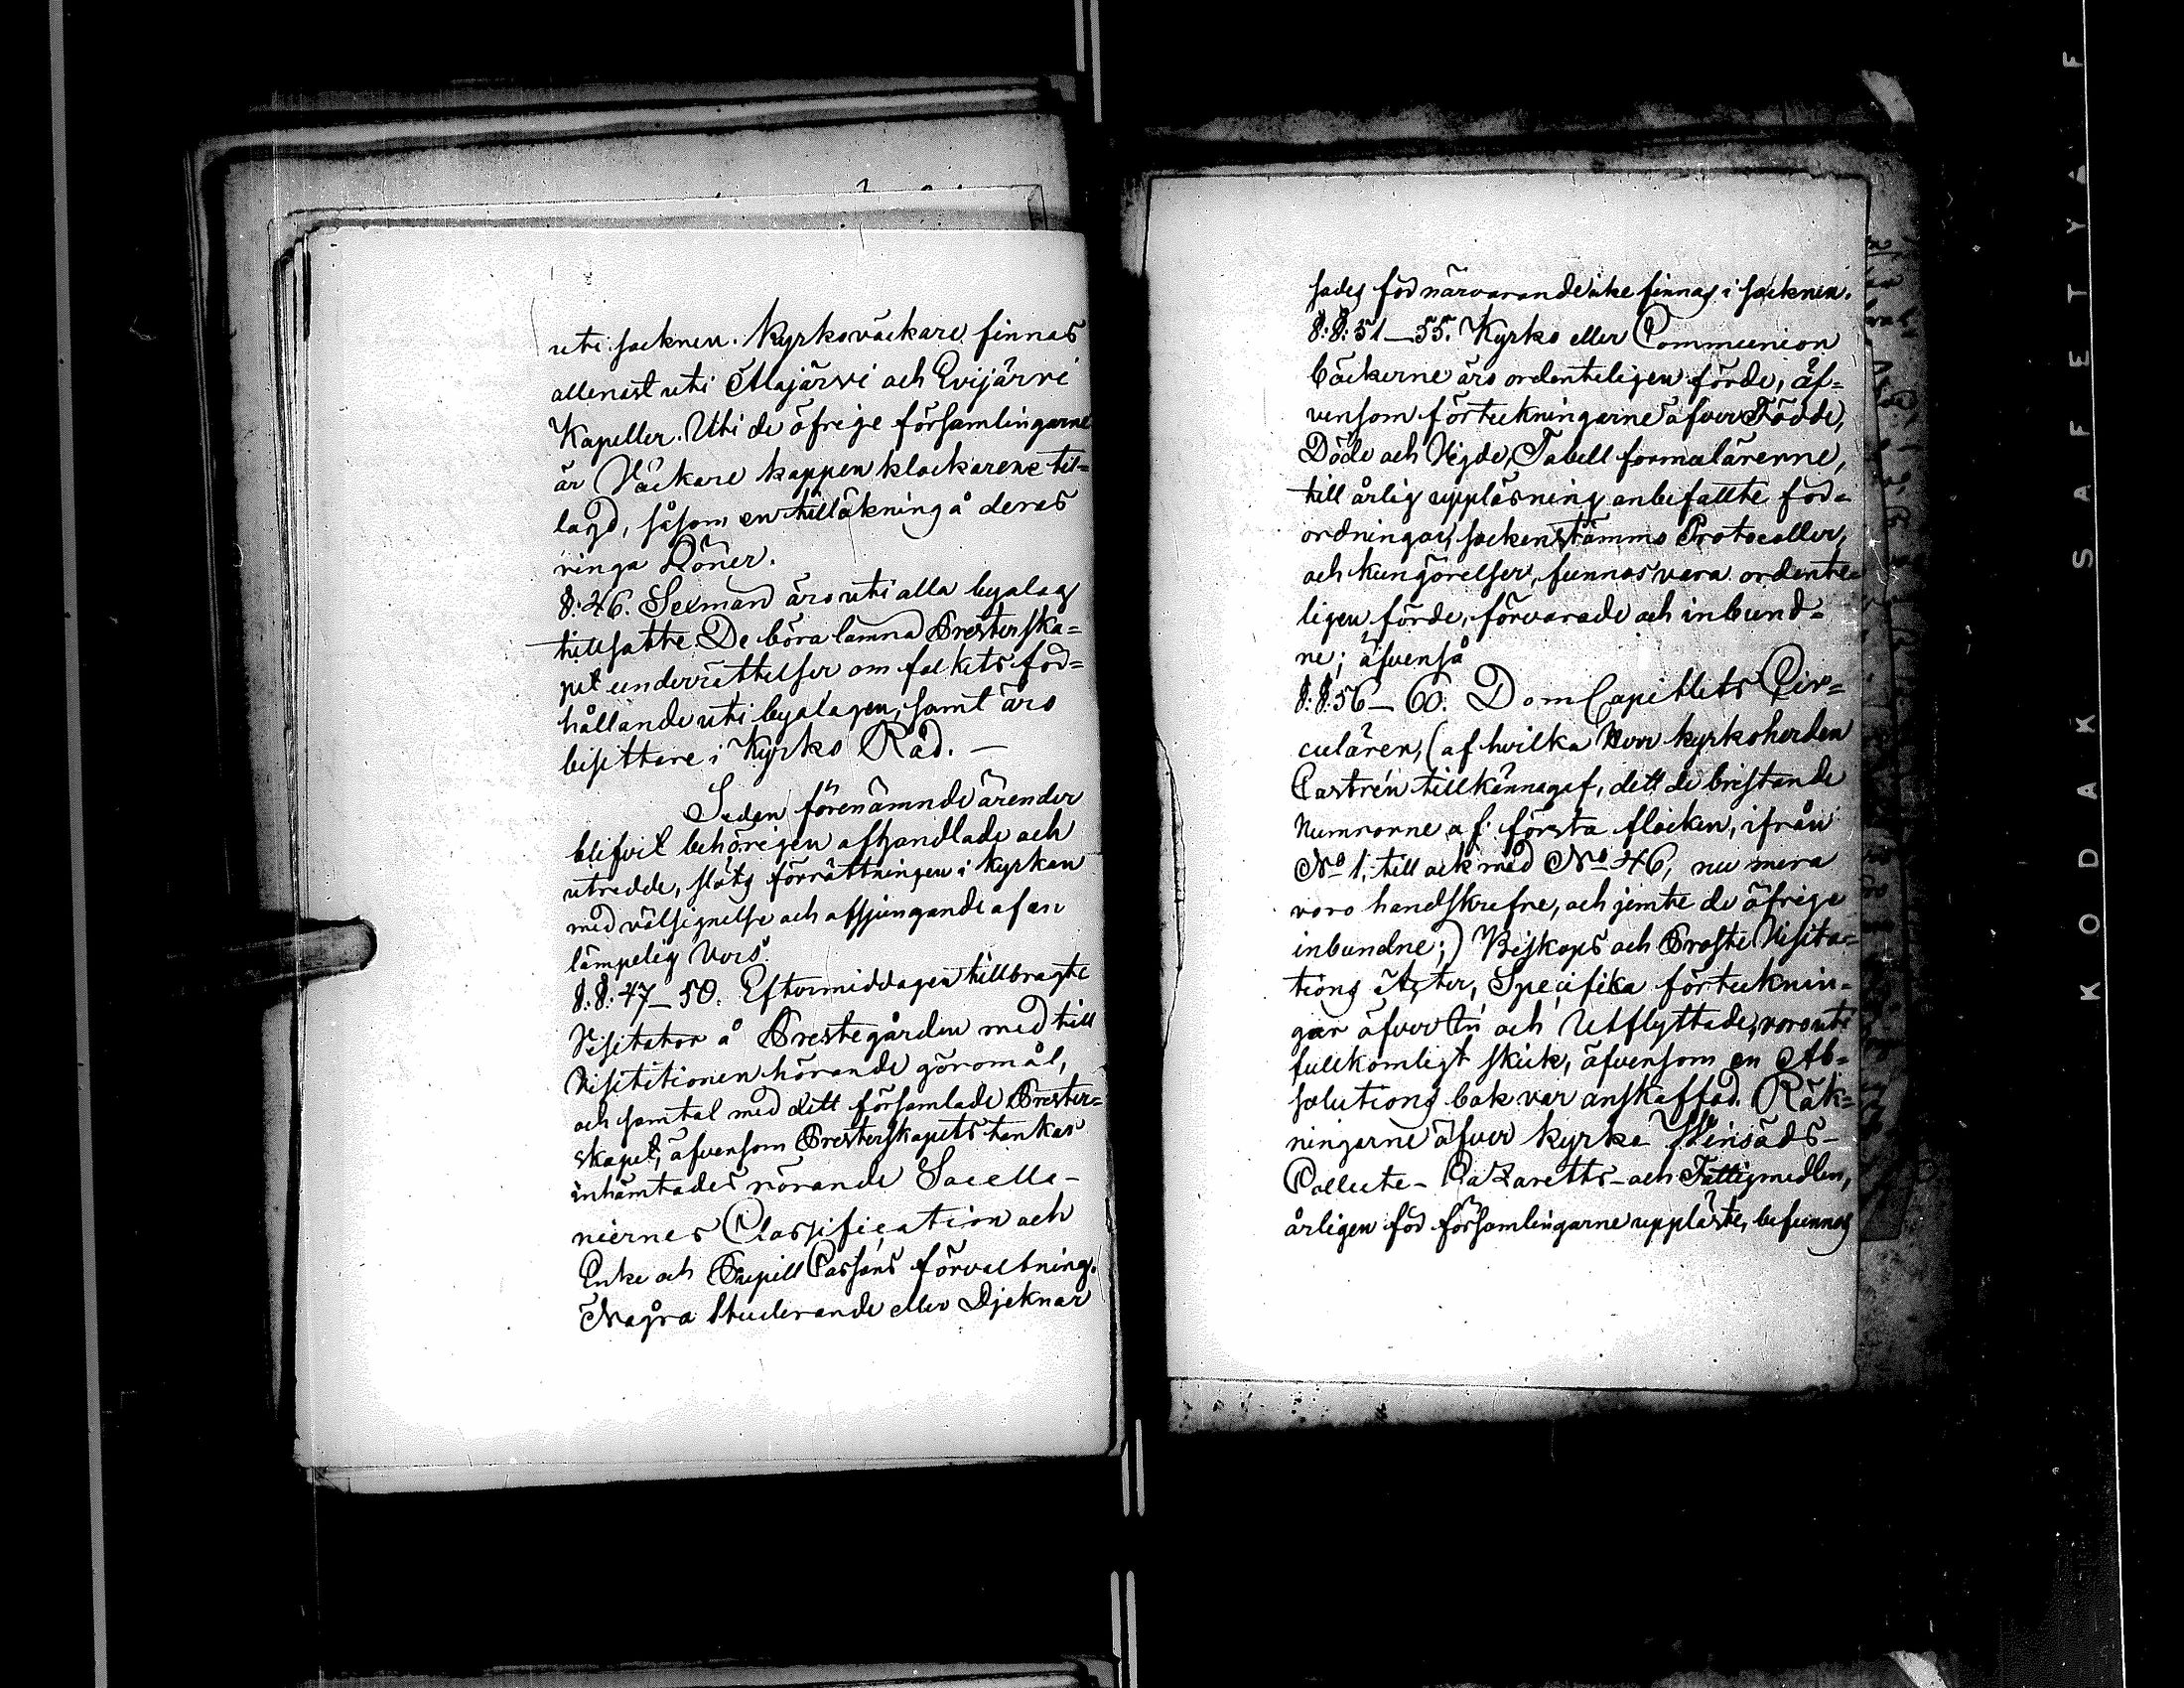 uti socknen. Kyrkoväckare finnas
allenast uti Alajärvi och Evijärvi
Kapeller. Uti de öfrige församlingarne
är Väckare kappen klockarene til-
lagd, såsom en tillökning å deras
ringa Löner.
§: 46. Sexmän äro uti alla byalag
tillsatte. De böra lämna Presterska-
pet underrättelser om folkets för-
hållande uti byalagen, samt äro
bisittare i Kyrko Råd. —
Sedan förenämnde ärender
blifvit behörigen afhandlade och
utredde, slöts förrättningen i kyrkan
med välsignelse och afsjungande af en
lämpelig Vers.
§:§: 47–50. Eftermiddagen tillbragte
Visitator å Prestegården med till
Visititionen hörande göromål,
och samtal med dett församlade Prester-
skapet, äfvensom Presterskapets tankar
inhämtades rörande Sacella-
niernes Classification och
Enke och Pupill Cassans förvaltning.
Några Studerande eller Djeknar
sades för närvarande icke finnas i socknen.
§:§: 51–55. Kyrko eller Communion
böckerne äro ordenteligen förde, äf-
vensom förteckningarne äfver Födde,
Döde och Vigde, Tabell formulärerne,
till årlig uppläsning anbefallte för-
ordningar, sockenstämmo Protocoller,
och kungörelser, funnos vara ordente-
ligen förde, förvarade och inbund-
ne; äfvenså
§:§: 56–60. DomCapitlets Cir-
culären, (af hvilka Herr kyrkoherden
Castrén tillkännagaf, dett de bristande
Numrorne af första flocken, ifrån
No 1, till ock med No 46, nu mera
voro handskrefne, och jemte de öfrige
inbundne;) Biskops och Proste Visita-
tions Acter, Specifika förtecknin-
gar äfver In och Utflyttade, voro uti
fullkomligt skick, äfvensom en Ab-
solutions bok var anskaffad. Räk-
ningarne äfver kyrko Winsäds-
Collecte- Lazaretts- och Fattigmedlen,
årligen för församlingarne uppläste, befunnos
KODAK SAFETY F